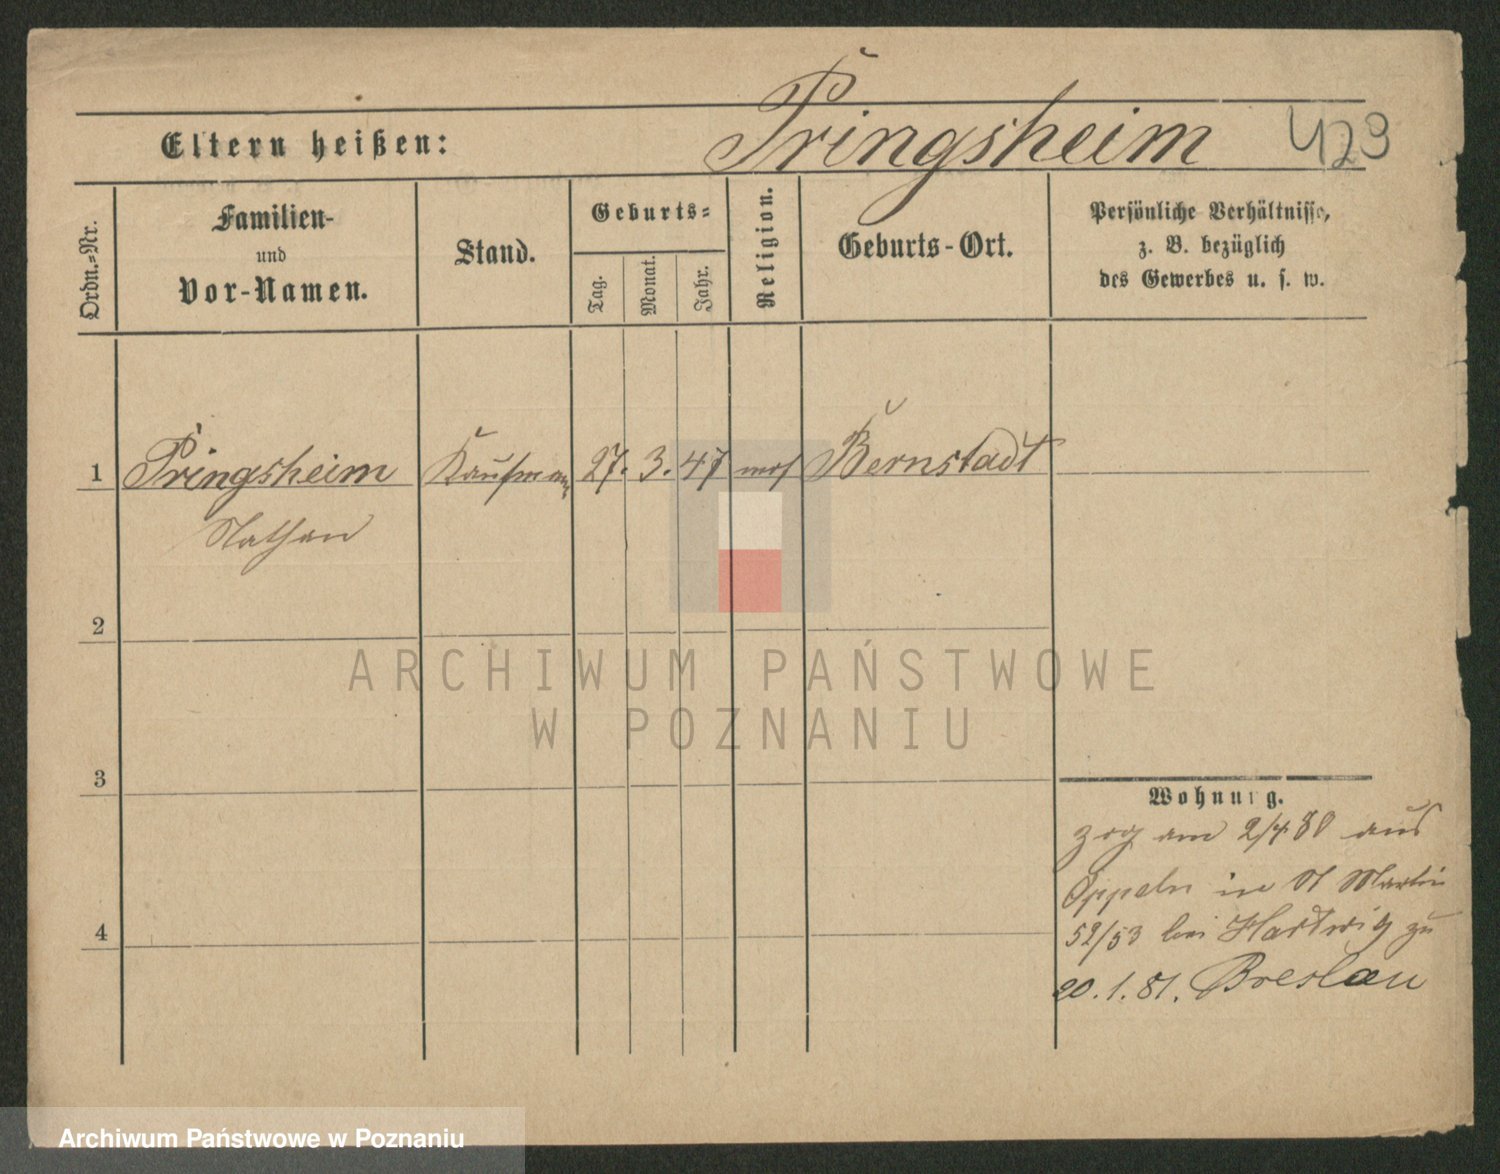 Pringsheim
423
Eltern heißen:
Ordn.-Nr.
Familien-
und
Vor-Namen.
Stand.
Geburts-
Tag.
Monat.
Jahr.
Religion.
Geburts-Ort.
Persönliche Verhältnisse,
z. B. bezüglich
des Gewerbes u. s. w.
1 Pringsheim Kaufmann 27. 3. 47 mos Bernstadt
Nathan
2
3
4
Wohnung.
zog am 2/4 80 aus
Oppeln in St Martin
52/53 bei Hartwig zu
20.1.81. Breslau
ARCHIWUM PAŃSTWOWE
W POZNANIU
Archiwum Państwowe w Poznaniu